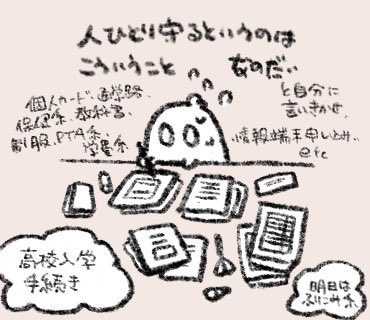 人ひとり守るというのは
こういうこと なのだ…
個人カード、通学路、
保健系、教科書、
制服、PTA系、
学費系
と自分に
言いきかせ
情報端末申し込み…
etc
高校入学
手続き
明日は
ふりこみ系